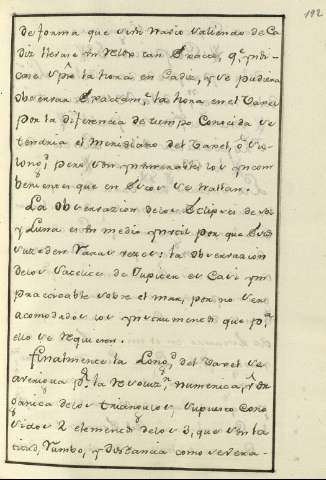 192
de forma que si un Navio saliendo de Ca
diz llevase un Relox tan Exacto, qe. indi
case spre. la hora en Cadiz, y se pudiera
observar Exactamte. la hora en el Vaxel
por la diferencia de tiempo Conocida se
tendria el Meridiano del Vaxel, o su
longd. pero son inumerables los incon
benientes que en Esto se hallan.
La Observazion de los Eclipses de sol
y Luna es un medio inutil por que
suzeden raras vezes: la Observazion
de los Satelites de Jupiter es Casi im
practicable sobre el mar, por no ser
acomodados los instrumentos que pa.
ello se requieren.
Finalmente la Longd. del Vaxel se
averigua pr. la Resoluzn. numerica, u or
ganica de los triangulos, supuesto Cono
cidos 2 elementos de los 3, que son la
titud, Rumbo, y distancia como se vera-